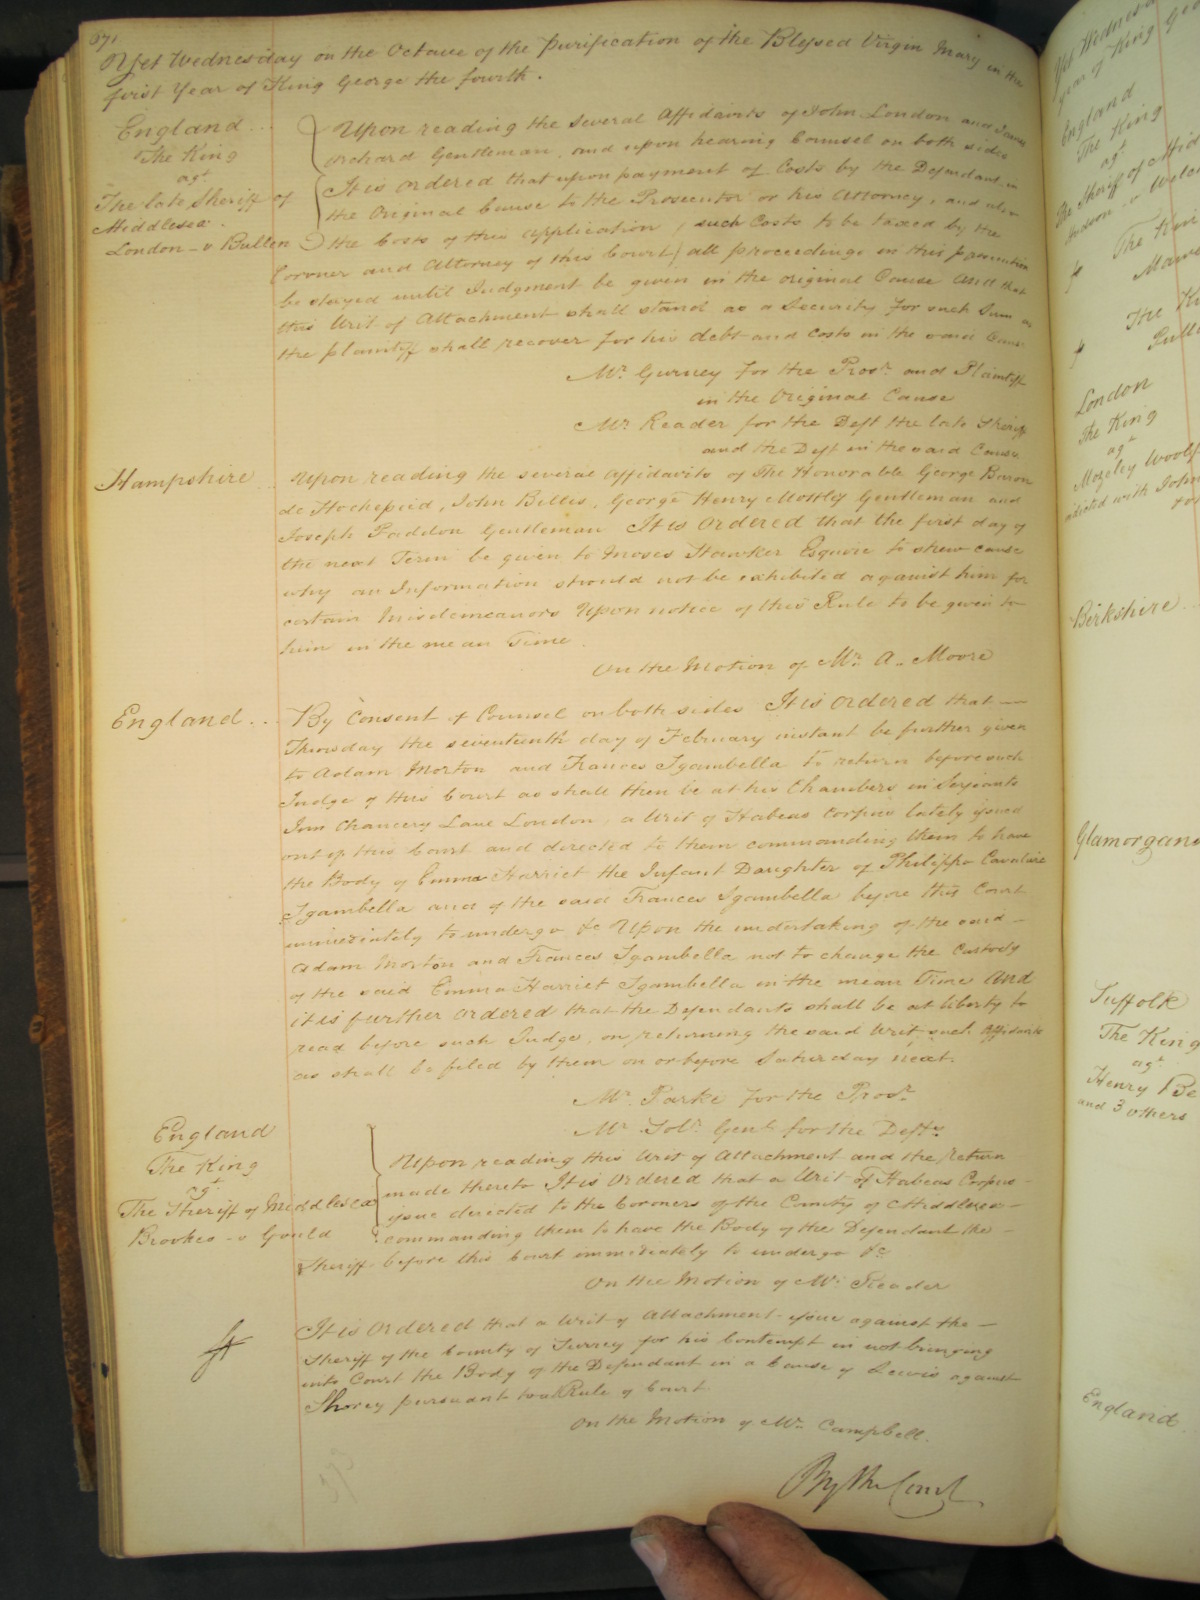 671
Yet Wednesday on the Octave of the Purification of the Blessed Virgin Mary in the
first Year of King George the fourth.
England ...
The King
agt
The late Sheriff of
Middlesex.
London - v Bullen
Upon reading the several Affidavits of John London and James
Orchard Gentleman, and upon hearing Counsel on both sides
It is Ordered that upon payment of Costs by the Defendant in
the Original Cause to the Prosecutor or his Attorney, and also
the Costs of this application, such Costs to be taxed by the
Coroner and Attorney of this Court, all proceedings in this prosecution
be stayed until Judgment be given in the original Cause And that
this Writ of Attachment shall stand as a Security for such Sum as
the plaintiff shall recover for his debt and costs in the said Cause
Mr. Gurney for the Prosr. and Plaintiff
in the Original Cause
Mr. Reader for the Deft the late Sheriff
and the Deft in the said Cause
Hampshire ...
Upon reading the several affidavits of The Honorable George Baron
de Hochepied, John Billis, George Henry Gentleman and
Joseph Paddon Gentleman It is Ordered that the first day of
the next Term be given to Moses Hawker Esquire to shew cause
why an Information should not be exhibited against him for
certain Misdemeanors Upon notice of this Rule to be given to
him in the mean Time.
On the Motion of Mr. A. Moore
England ...
By Consent of Counsel on both sides It is Ordered that
Thursday the seventeenth day of February instant be further given
to Adam Morton and Frances Sgambella to return before such
Judge of this Court as shall then be at his Chambers in Serjeants
Inn Chancery Lane London, a Writ of Habeas Corpus lately issued
out of this Court and directed to them commanding them to have
the Body of Emma Harriet the Infant Daughter of Philippo Cavaliere
Sgambella and of the said Frances Sgambella before this Court
immediately to undergo &c Upon the undertaking of the said -
Adam Morton and Frances Sgambella not to change the Custody
of the said Emma Harriet Sgambella in the mean Time And
it is further Ordered that the Defendants shall be at liberty to
read before such Judge, on returning the said Writ such Affidavits
as shall be filed by them on or before Saturday next.
Mr. Parke for the Prosr.
Mr. Solr. Genl. for the Defts.
England
The King
agt.
The Sheriff of Middlesex
Brookes - v Gould
Upon reading this Writ of Attachment and the return
made thereto It is Ordered that a Writ of Habeas Corpus -
issue directed to the Coroners of the County of Middlesex -
commanding them to have the Body of the Defendant the -
Sheriff before this Court immediately to undergo &c
On the Motion of Mr. Reader
It is Ordered that a Writ of Attachment issue against the -
Sheriff of the County of Surrey for his Contempt in not bringing
into Court the Body of the Defendant in a Cause of Lewis against
Shorey pursuant to a Rule of Court.
On the Motion of Mr. Campbell.
By the Court
Yet Wednesd
year of King Geo
England
The King
agt.
The Sheriff of Mid
The Kin
The Ki
London
The King
agt
Mozeley Woolf
with John
Berkshire ...
Glamorgan
Suffolk
The King
agt.
Henry Be
and 3 others
England